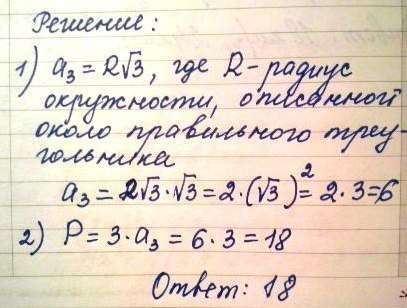 Решение:
1) a₃ = R√3, где R - радиус
окружности, описанной
около правильного треу-
гольника
a₃ = 2√3 · √3 = 2 · (√3)² = 2 · 3 = 6
2) P = 3 · a₃ = 6 · 3 = 18
Ответ: 18